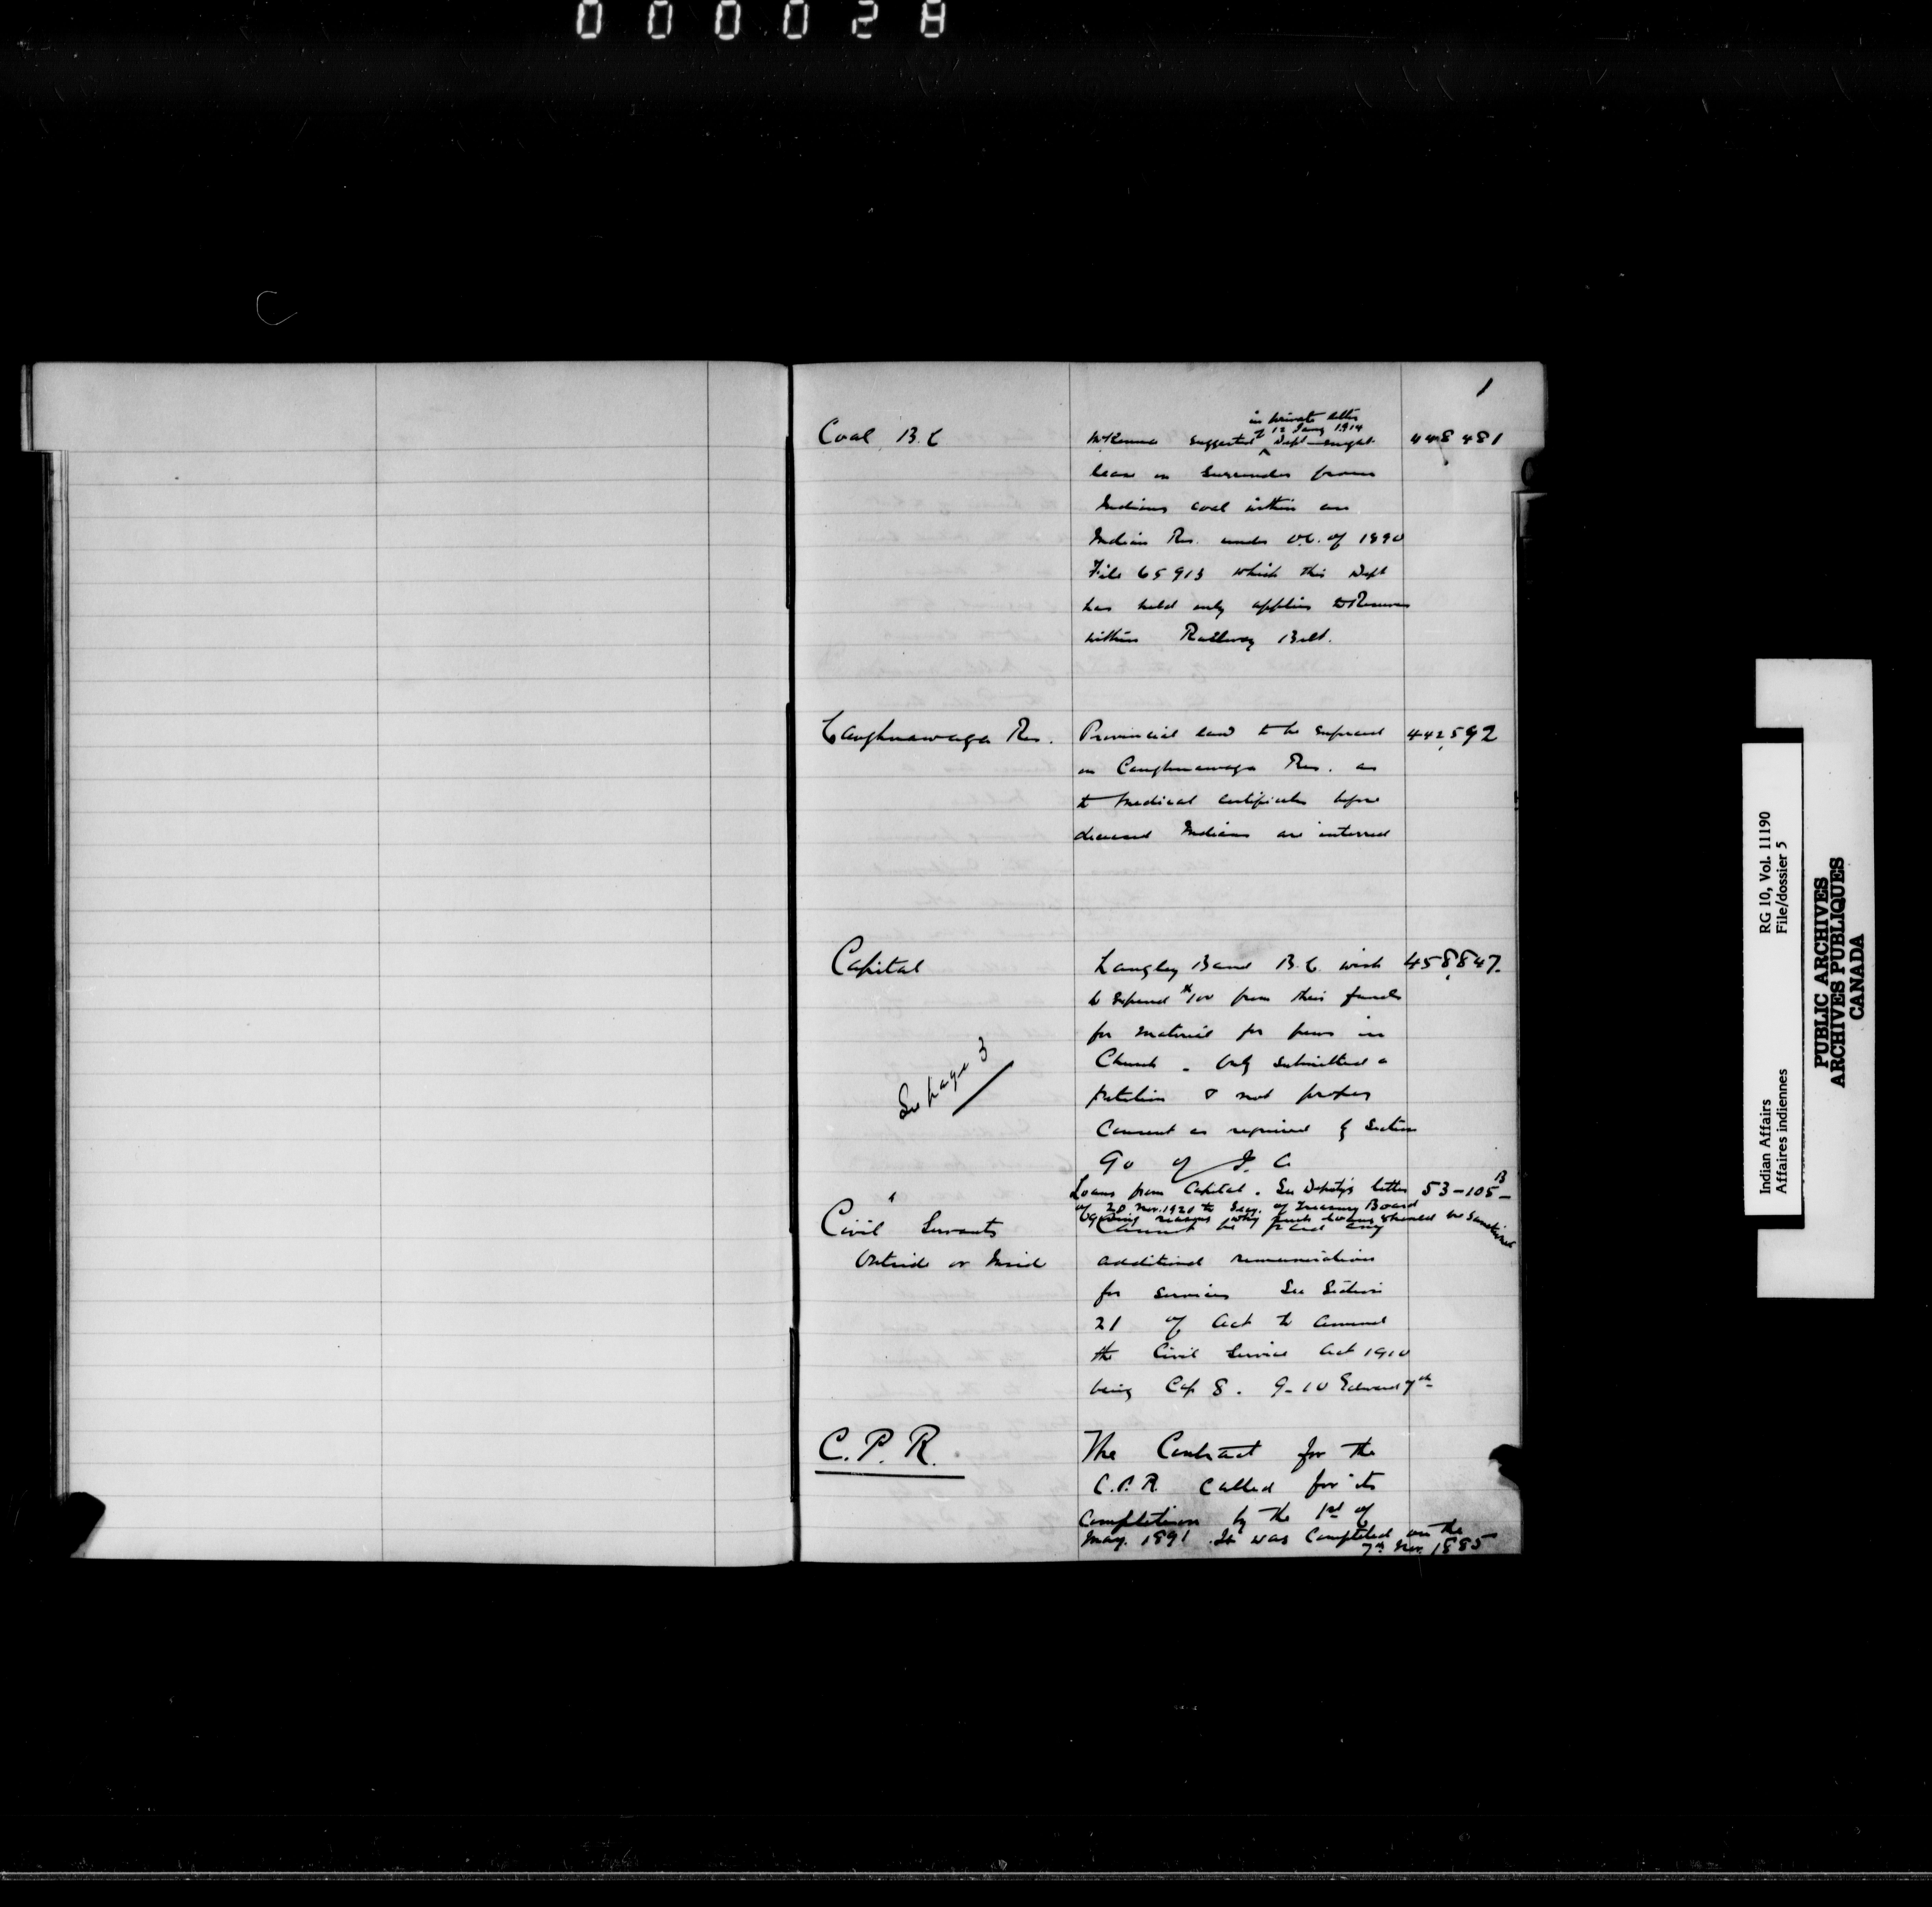 000028
C
1
Coal B.C
in private letter
of 12 Jany 1914
McKenna suggested Dept sought 448481
lease or surrender from
Indians coal within an
Indian Res. under O.C. of 1890
File 65913 which this Dept
has held only applies to Reserves
within Railway Belt.
Caughnawaga Res. Provincial law to be enforced 442592
on Caughnawaga Res. as
to medical certificates before
deceased Indians are interred
Capital Langley Band B.C. wish 458847.
to expend $100 from their funds
for material for pews in
Church - Only submitted a
See page 3
petition & not proper
Consent as required by Section
90 of I. A.
Loans from Capital. See Deputy's letter 53-105-B
of 20 Nov. 1920 to Secy. of Treasury Board
giving reasons why such loans should be sanctioned
Civil Servants Cannot be paid any
Outside or Inside additional remuneration
for services See Section
21 of Act to amend
the Civil Service Act 1910
being Cap 8. 9-10 Edward 7th
C.P.R. The Contract for the
C.P.R. called for its
Completion by the 1st of
May. 1891. It was Completed on the
7th Nov. 1885
Indian Affairs RG 10, Vol. 11190
Affaires indiennes File/dossier 5
PUBLIC ARCHIVES
ARCHIVES PUBLIQUES
CANADA